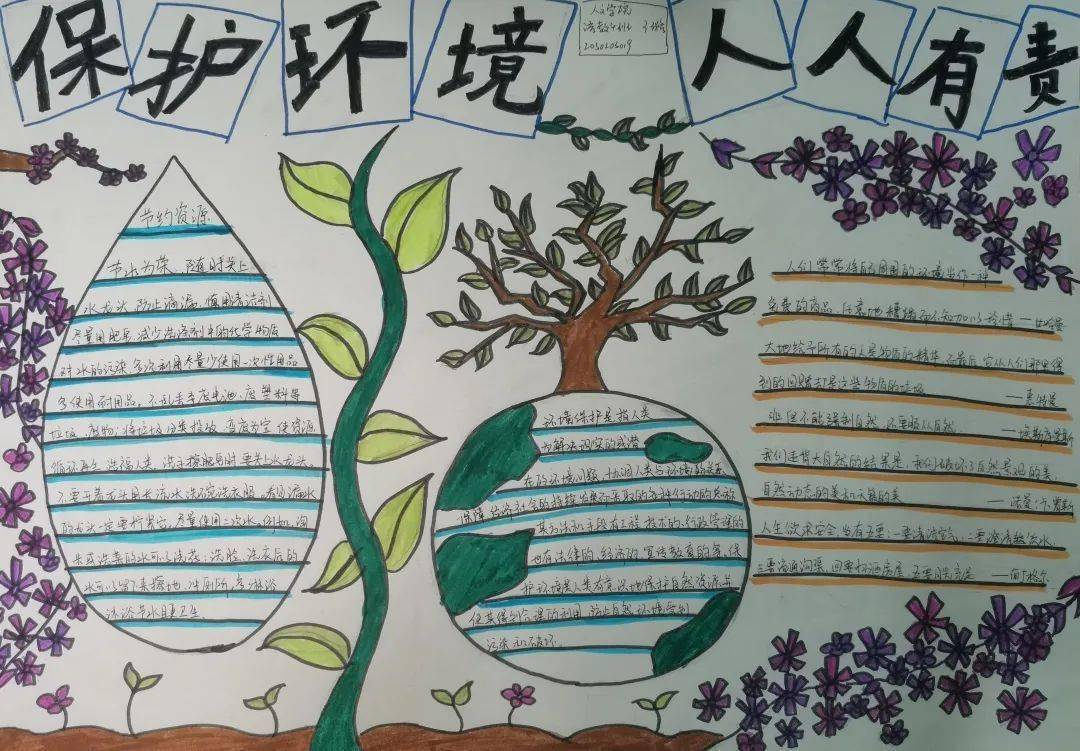 保护环境人人有责
人文学院
2030206019
节约资源
节水为荣、随时关上
水龙头,防止滴漏,慎用清洁剂
尽量用肥皂,减少洗涤剂中的化学物质
对水的污染 多次利用尽量少使用一次性用品
多使用耐用品。不乱丢弃废电池、废塑料等
垃圾、废物;将垃圾分类投放 变废为宝 使资源
循环再生 造福人类。洗手擦肥皂时要关上水龙头,
不要开着龙头用长流水洗碗洗衣服 看见漏水
的龙头一定要拧紧它。尽量使用二次水。例如,淘
米或洗菜的水可以浇花;洗脸、洗衣后的
水可以留下来擦地、冲厕所,多淋浴
沐浴节水且卫生
环境保护是指人类
为解决现实的或潜
在的环境问题,协调人类与环境的关系
保障经济社会的持续发展而采取的各种行动的总称
其方法和手段有工程技术的、行政管理的
也有法律的、经济的、宣传教育的等,保
护环境是人类有意识地保护自然资源并
使其得到合理的利用,防止自然环境受到
污染和破坏。
人们常常将自己周围的环境当作一种
免费的商品,任意地糟蹋而不知加以珍惜
大地给予所有的人是物质的精华,而最后,它从人们那里得
到的回赠却是这些物质的垃圾 ——惠特曼
非但不能强制自然,还要服从自然。 ——埃斯库罗斯
我们违背大自然的结果是,我们破坏了自然景观的美
自然动态的美和天籁的美 ——诺曼·卡曾斯
人生欲求安全,当有五要。一要清洁空气;二要澄清饮水
三要流通沟渠,四要扫洒房屋 五要日光充足 ——南丁格尔